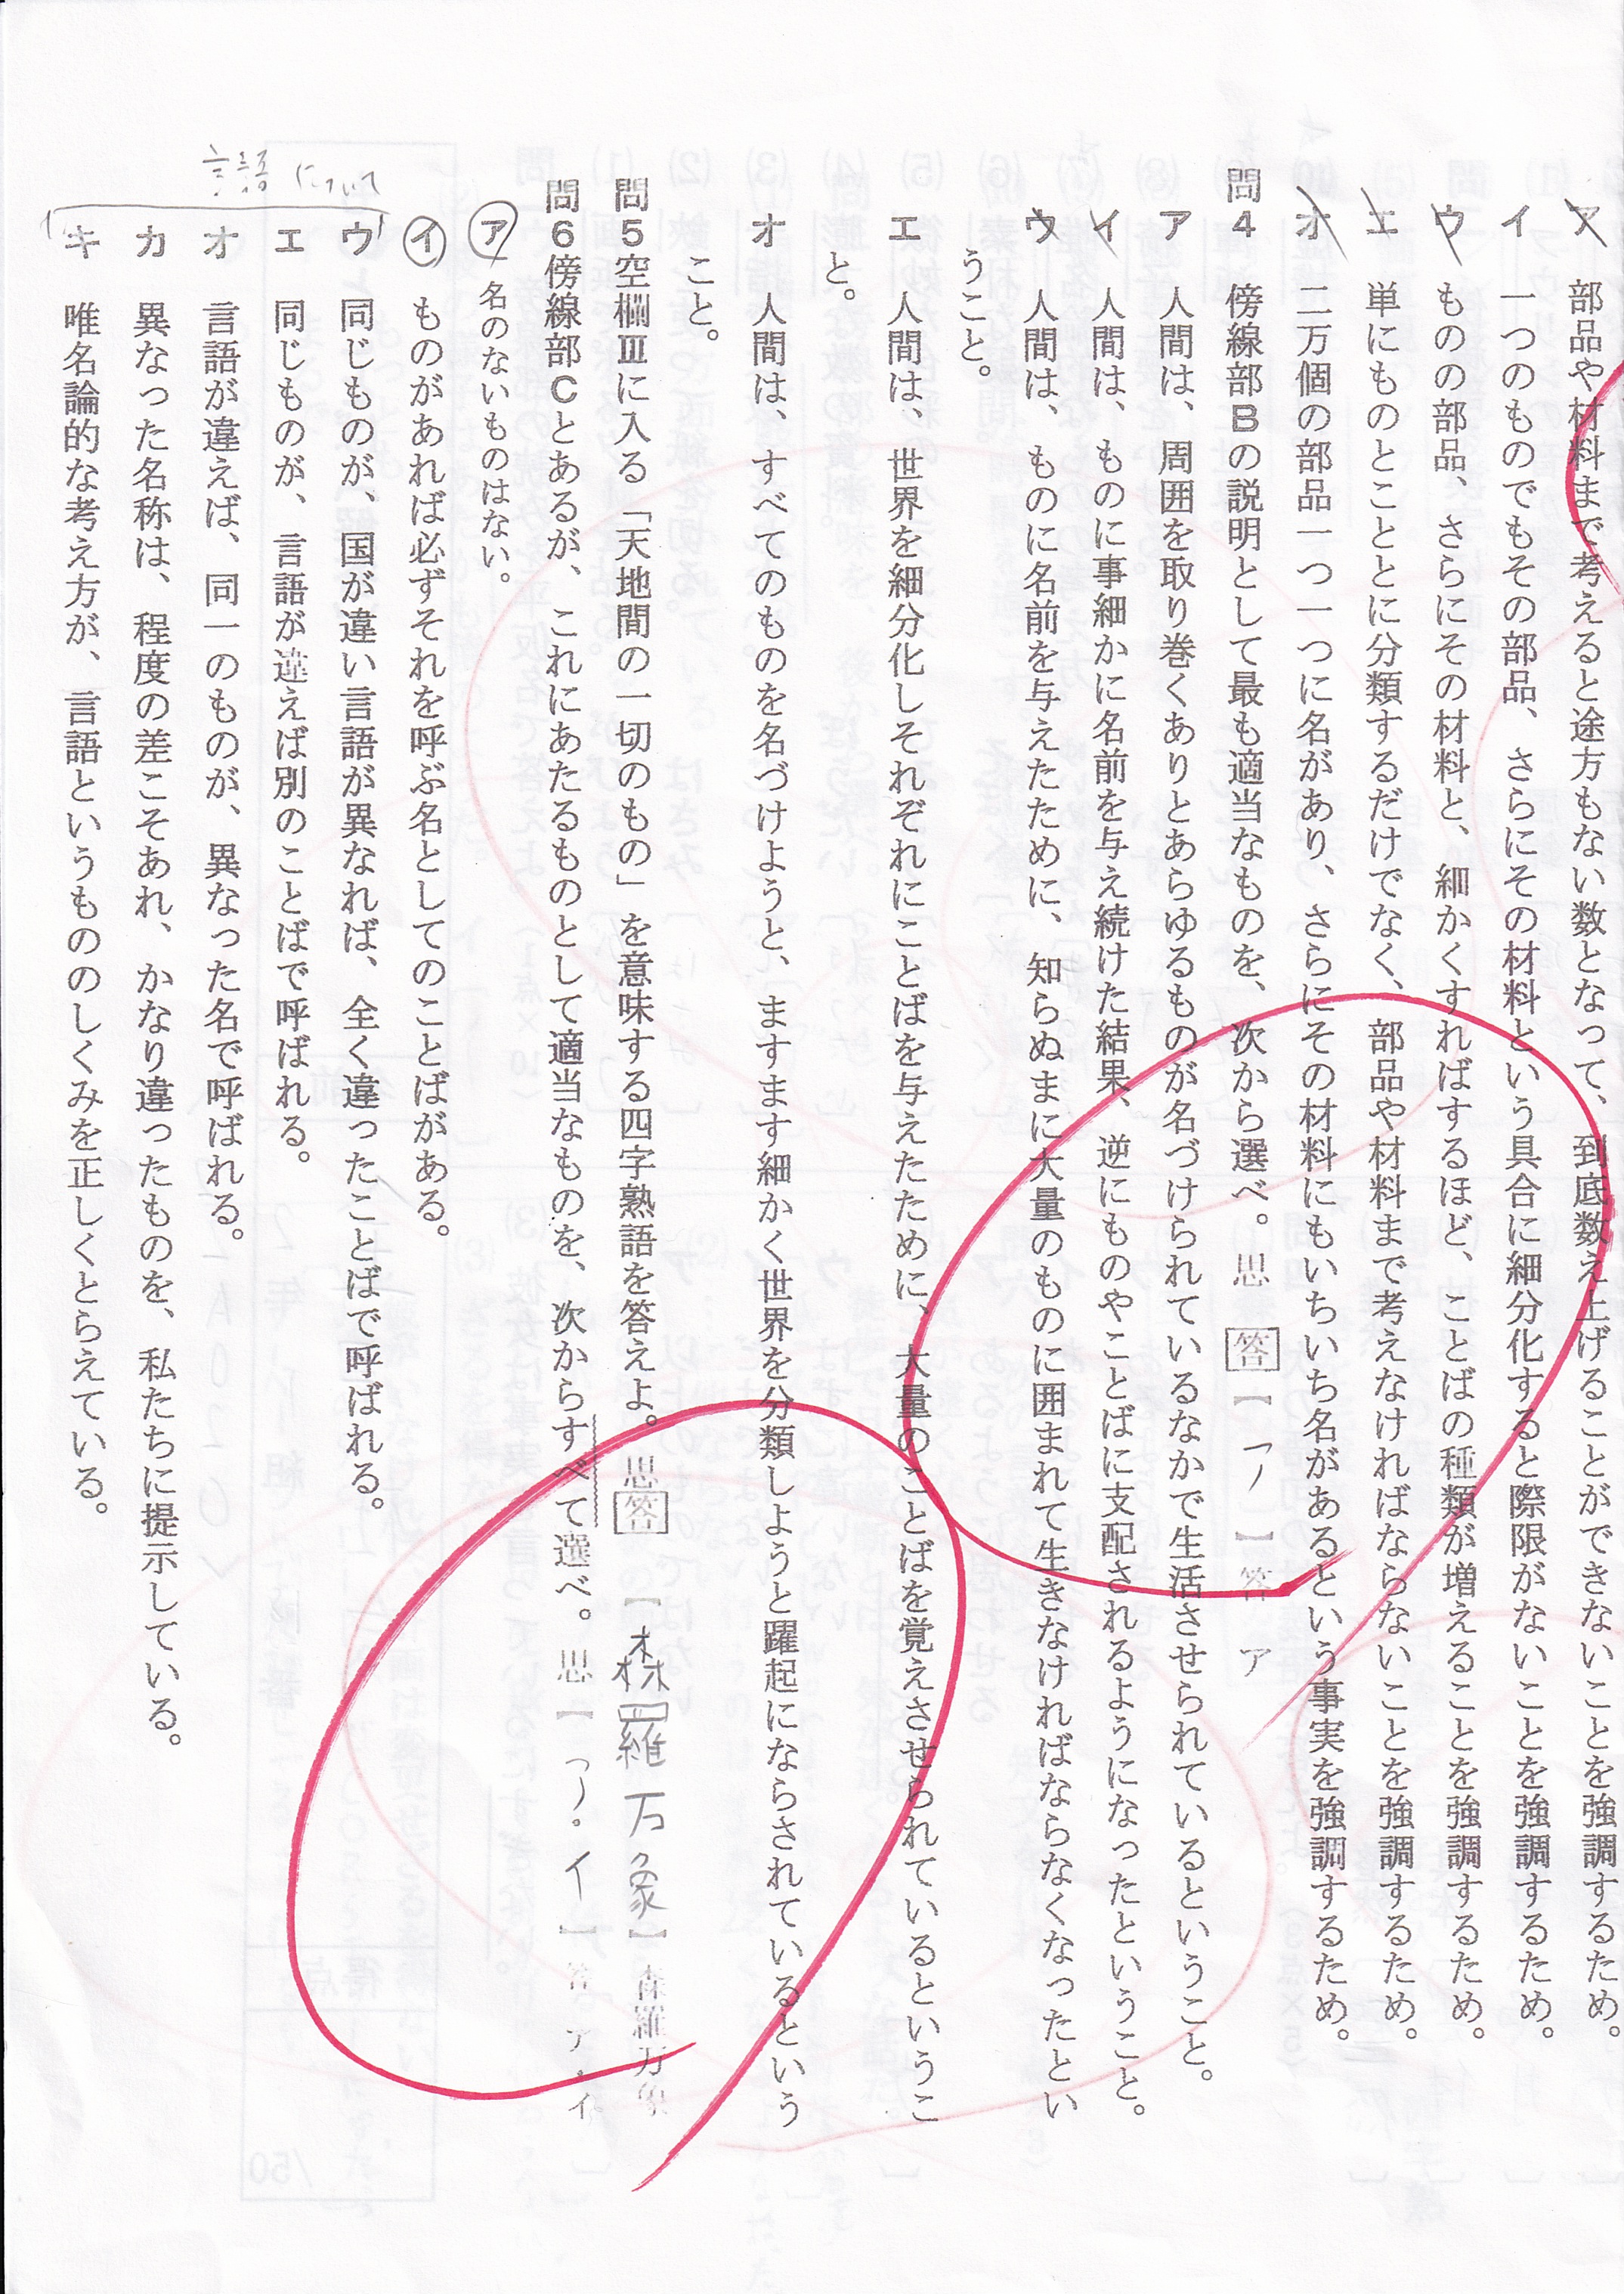 ア　部品や材料まで考えると途方もない数となって、到底数え上げることができないことを強調するため。
イ　一つのものでもその部品、さらにその材料という具合に細分化すると際限がないことを強調するため。
ウ　ものの部品、さらにその材料と、細かくすればするほど、ことばの種類が増えることを強調するため。
エ　単にものとこととに分類するだけでなく、部品や材料まで考えなければならないことを強調するため。
オ　二万個の部品一つ一つに名があり、さらにその材料にもいちいち名があるという事実を強調するため。
問４　傍線部Ｂの説明として最も適当なものを、次から選べ。思 答【 ア 】答 ア
ア　人間は、周囲を取り巻くありとあらゆるものが名づけられているなかで生活させられているということ。
イ　人間は、ものに事細かに名前を与え続けた結果、逆にものやことばに支配されるようになったということ。
ウ　人間は、ものに名前を与えたために、知らぬまに大量のものに囲まれて生きなければならなくなったとい
うこと。
エ　人間は、世界を細分化しそれぞれにことばを与えたために、大量のことばを覚えさせられているというこ
と。
オ　人間は、すべてのものを名づけようと、ますます細かく世界を分類しようと躍起にならされているという
こと。
問５ 空欄Ⅲに入る「天地間の一切のもの」を意味する四字熟語を答えよ。思 答【 森羅万象 】森羅万象
問６ 傍線部Ｃとあるが、これにあたるものとして適当なものを、次からすべて選べ。思【 ア・イ 】答 ア・イ
ア　名のないものはない。
イ　ものがあれば必ずそれを呼ぶ名としてのことばがある。
言語について
ウ　同じものが、国が違い言語が異なれば、全く違ったことばで呼ばれる。
エ　同じものが、言語が違えば別のことばで呼ばれる。
オ　言語が違えば、同一のものが、異なった名で呼ばれる。
カ　異なった名称は、程度の差こそあれ、かなり違ったものを、私たちに提示している。
キ　唯名論的な考え方が、言語というもののしくみを正しくとらえている。